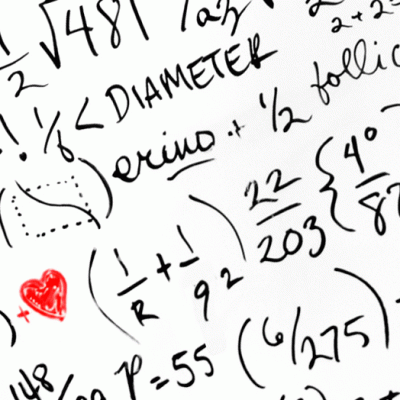 1/2 √481
2+2
! 1/6 < DIAMETER
erino + 1/2 follic
22/203 { 4°/87
(1/R + 1/92)
148 P=55 (6/275)